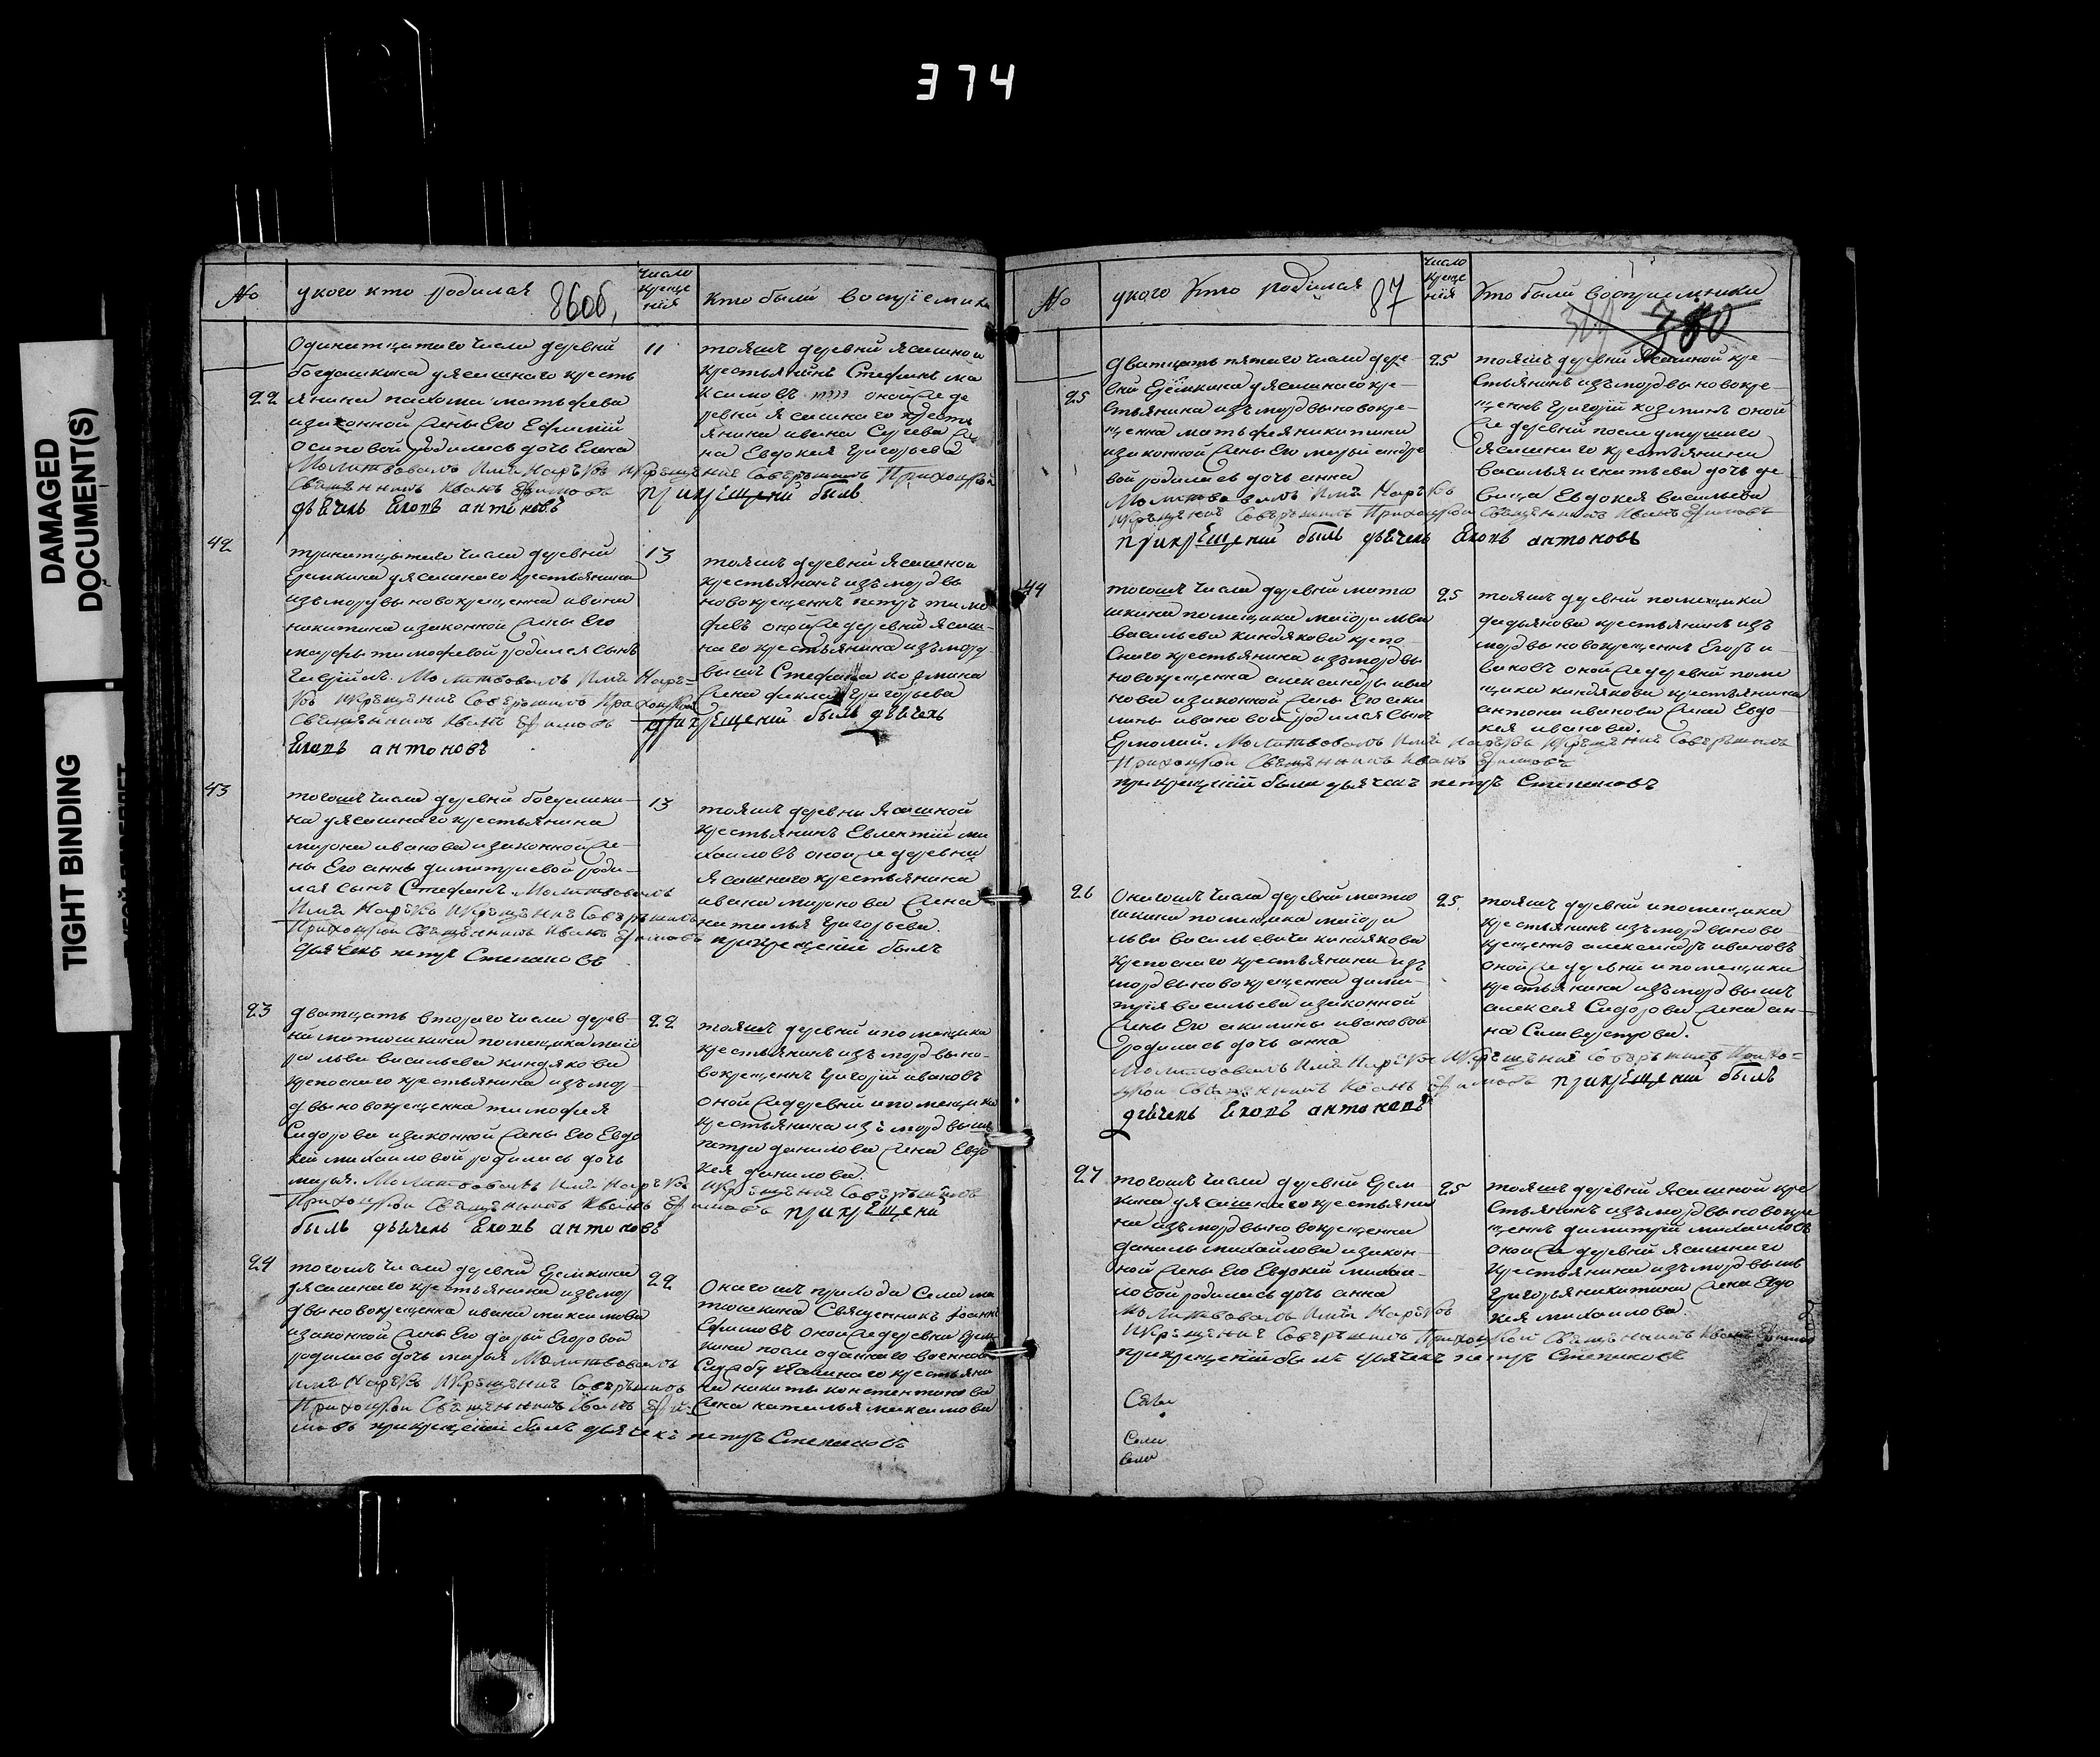 374
DAMAGED
DOCUMENT(S)
TIGHT BINDING
№
укого кто родился
86об,
число
креще
нія
кто были воспріемники
22
Одинатцатого числа деревни
богдашкина уясашнаго кресть
янина пахома матвѣева
изаконной жены Его Ефимїи
осиповой родилась дочь Елена
Молитвовалъ Имя Нарѣкъ Икрѣщение Совѣршилъ Приходской
Свещѣнникъ Иванъ Ефимовъ прикрещени былъ
дьячекъ Егоръ антоновъ
11
тояжъ деревни Ясашной
крестьянинъ Стефанъ ма
ксимовъ оной же де
ревни Ясашнаго кресть
янина ивана Сергева же
на Евдокея григорьева
42
тринатцатого числа деревни
Еремкина уясашнаго крестьянина
измордвы новокрещенна ивана
никитина изаконной жены Его
марфы тимофевой родился сынъ
Гаврїилъ. Молитвовалъ Имя Нарѣ=
къ Икрѣщение Совѣршилъ Приходской
Свещѣнникъ Иванъ Ефимовъ прикрещени былъ дьячекъ
Егоръ антоновъ
13
тояжъ деревни Ясашной
крестьянинъ измордвы
новокрещенъ петръ тимо
февъ оной же деревни ясаш-
наго крестьянина измор
вышъ Стефана козмина
жена фекла григорьева
43
тогожъ числа деревни богдашки-
на уясашнаго крестьянина
мирона иванова изаконной же-
ны Его анны димитриевой роди-
лся сынъ Стефанъ Молитвовалъ
Имя Нарѣкъ Икрѣщение Совѣршилъ
Приходской Свещѣнникъ Иванъ Ефимовъ прикрещенїи былъ
дьячекъ петръ Степановъ
13
тояжъ деревни Ясашной
крестьянинъ Евлентїй ми
хаиловъ оной же деревни
Ясашнаго крестьянина
ивана миронова жена
наталья григорьева.
23
дватцать второго числа дерев-
ни матюшкина помещика маїо
ра льва васильева киндякова
крепоснаго крестьянина измор
двы новокрещенна тимофея
Сидорова изаконной жены Его Евдо
кеи михаиловой родилась дочь
марья. Молитвовалъ Имя Нарѣкъ Икрѣщение Совѣршилъ
Приходской Свещѣнникъ Иванъ Ефимовъ прикрещени
былъ дьячекъ Егоръ антоновъ
22
тояжъ деревни ипомещика
крестьянинъ изъ мордвы но-
вокрещенъ григорїй ивановъ
оной же деревни ипомещика
крестьянина изъ мордвышъ
петра данилова жена Евдо
кея данилова.
24
тогожъ числа деревни Еремкина
уясашнаго крестьянина измор
двы новокрещенна ивана максимова
изаконной жены Его дарьи Егоровой
родилась дочь марья Молитвовалъ
имя Нарѣкъ Икрѣщение Совѣршилъ
Приходской Свещѣнникъ Иванъ Ефи-
мовъ прикрещенїи былъ дьячекъ петръ Степановъ
22
Оногожъ прихода Села ма
тюшкина Священникъ Іоаннъ
Ефимовъ оной же деревни Ерем-
кина после оданнаго военной
Службу Ясашнаго крестьяни
на никиты констентинова
жена наталья максимова
№
укого кто родился
87
число
креще
нія
кто были воспріемники
380
25
дватцать пятаго числа дере-
вни Еремкина уясашнаго кре-
стьянина измордвы новокре-
щенна матьфея никитина
изаконной жены Его марьи андре
вой родилась дочь анна
Молитвовалъ Имя Нарѣкъ
Икрѣщение Совѣршилъ Приходской Свещѣнникъ Иванъ Ефимовъ
прикрещени былъ дьячекъ Егоръ антоновъ
25
тояжъ деревни Ясашной кре-
стьянинъ измордвы новокре-
щенъ григорїй козминъ оной
же деревни после умершаго
Ясашнаго крестьянина
василья игнатьева дочь де
вица Евдокея васильева
44
тогожъ числа деревни матю
шкина помещика маїора льва
васильева киндякова крепо-
снаго крестьянина измордвы
новокрещенна александры ива
нова изаконной жены Его аку
лины ивановой родился сынъ
Ермолай. Молитвовалъ Имя Нарѣкъ Икрѣщение Совѣршилъ
Приходской Свещѣнникъ Иванъ Ефимовъ
прикрещенїи были дьячекъ петръ Степановъ
25
тояжъ деревни помещика
дадьянова крестьянинъ изъ
мордвы новокрещенъ Егоръ и-
вановъ оной же деревни поме
щика киндякова крестьянина
антона иванова жена Евдо
кея иванова.
26
Оногожъ числа деревни матю
шкина помещика маїора
льва васильевича киндякова
крепоснаго крестьянина изъ
мордвы новокрещенна дими-
трїя васильева изаконной
жены Его акилины ивановой
родилась дочь анна
Молитвовалъ Имя Нарѣкъ Икрѣщение Совѣршилъ Прихо=
дской Свещѣнникъ Иванъ Ефимовъ прикрещени былъ
дьячекъ Егоръ антоновъ
25
тояжъ деревни ипомещика
крестьянинъ измордвы ново-
крещенъ александръ ивановъ
оной же деревни ипомещика
крестьянина измордвышъ
алексея Сидорова жена ан-
на Селиверстрова.
27
тогожъ числа деревни Ерем
кина уясашнаго крестьяни
на измордвы новокрещенна
данилы михайлова изакон-
ной жены Его Евдокеи михаи-
ловой родилась дочь анна
Молитвовалъ Имя Нарѣкъ
Икрѣщение Совѣршилъ Приходской Свещѣнникъ Иванъ Ефимовъ
прикрещенїи былъ дьячекъ петръ Степановъ
25
тояжъ деревни Ясашной кре
стьянинъ измордвы новокре
щенъ димитрїй михаиловъ
оной же деревни Ясашнаго
крестьянина измордвышъ
григорья никитина жена Евдо
кея михаилова.
Села